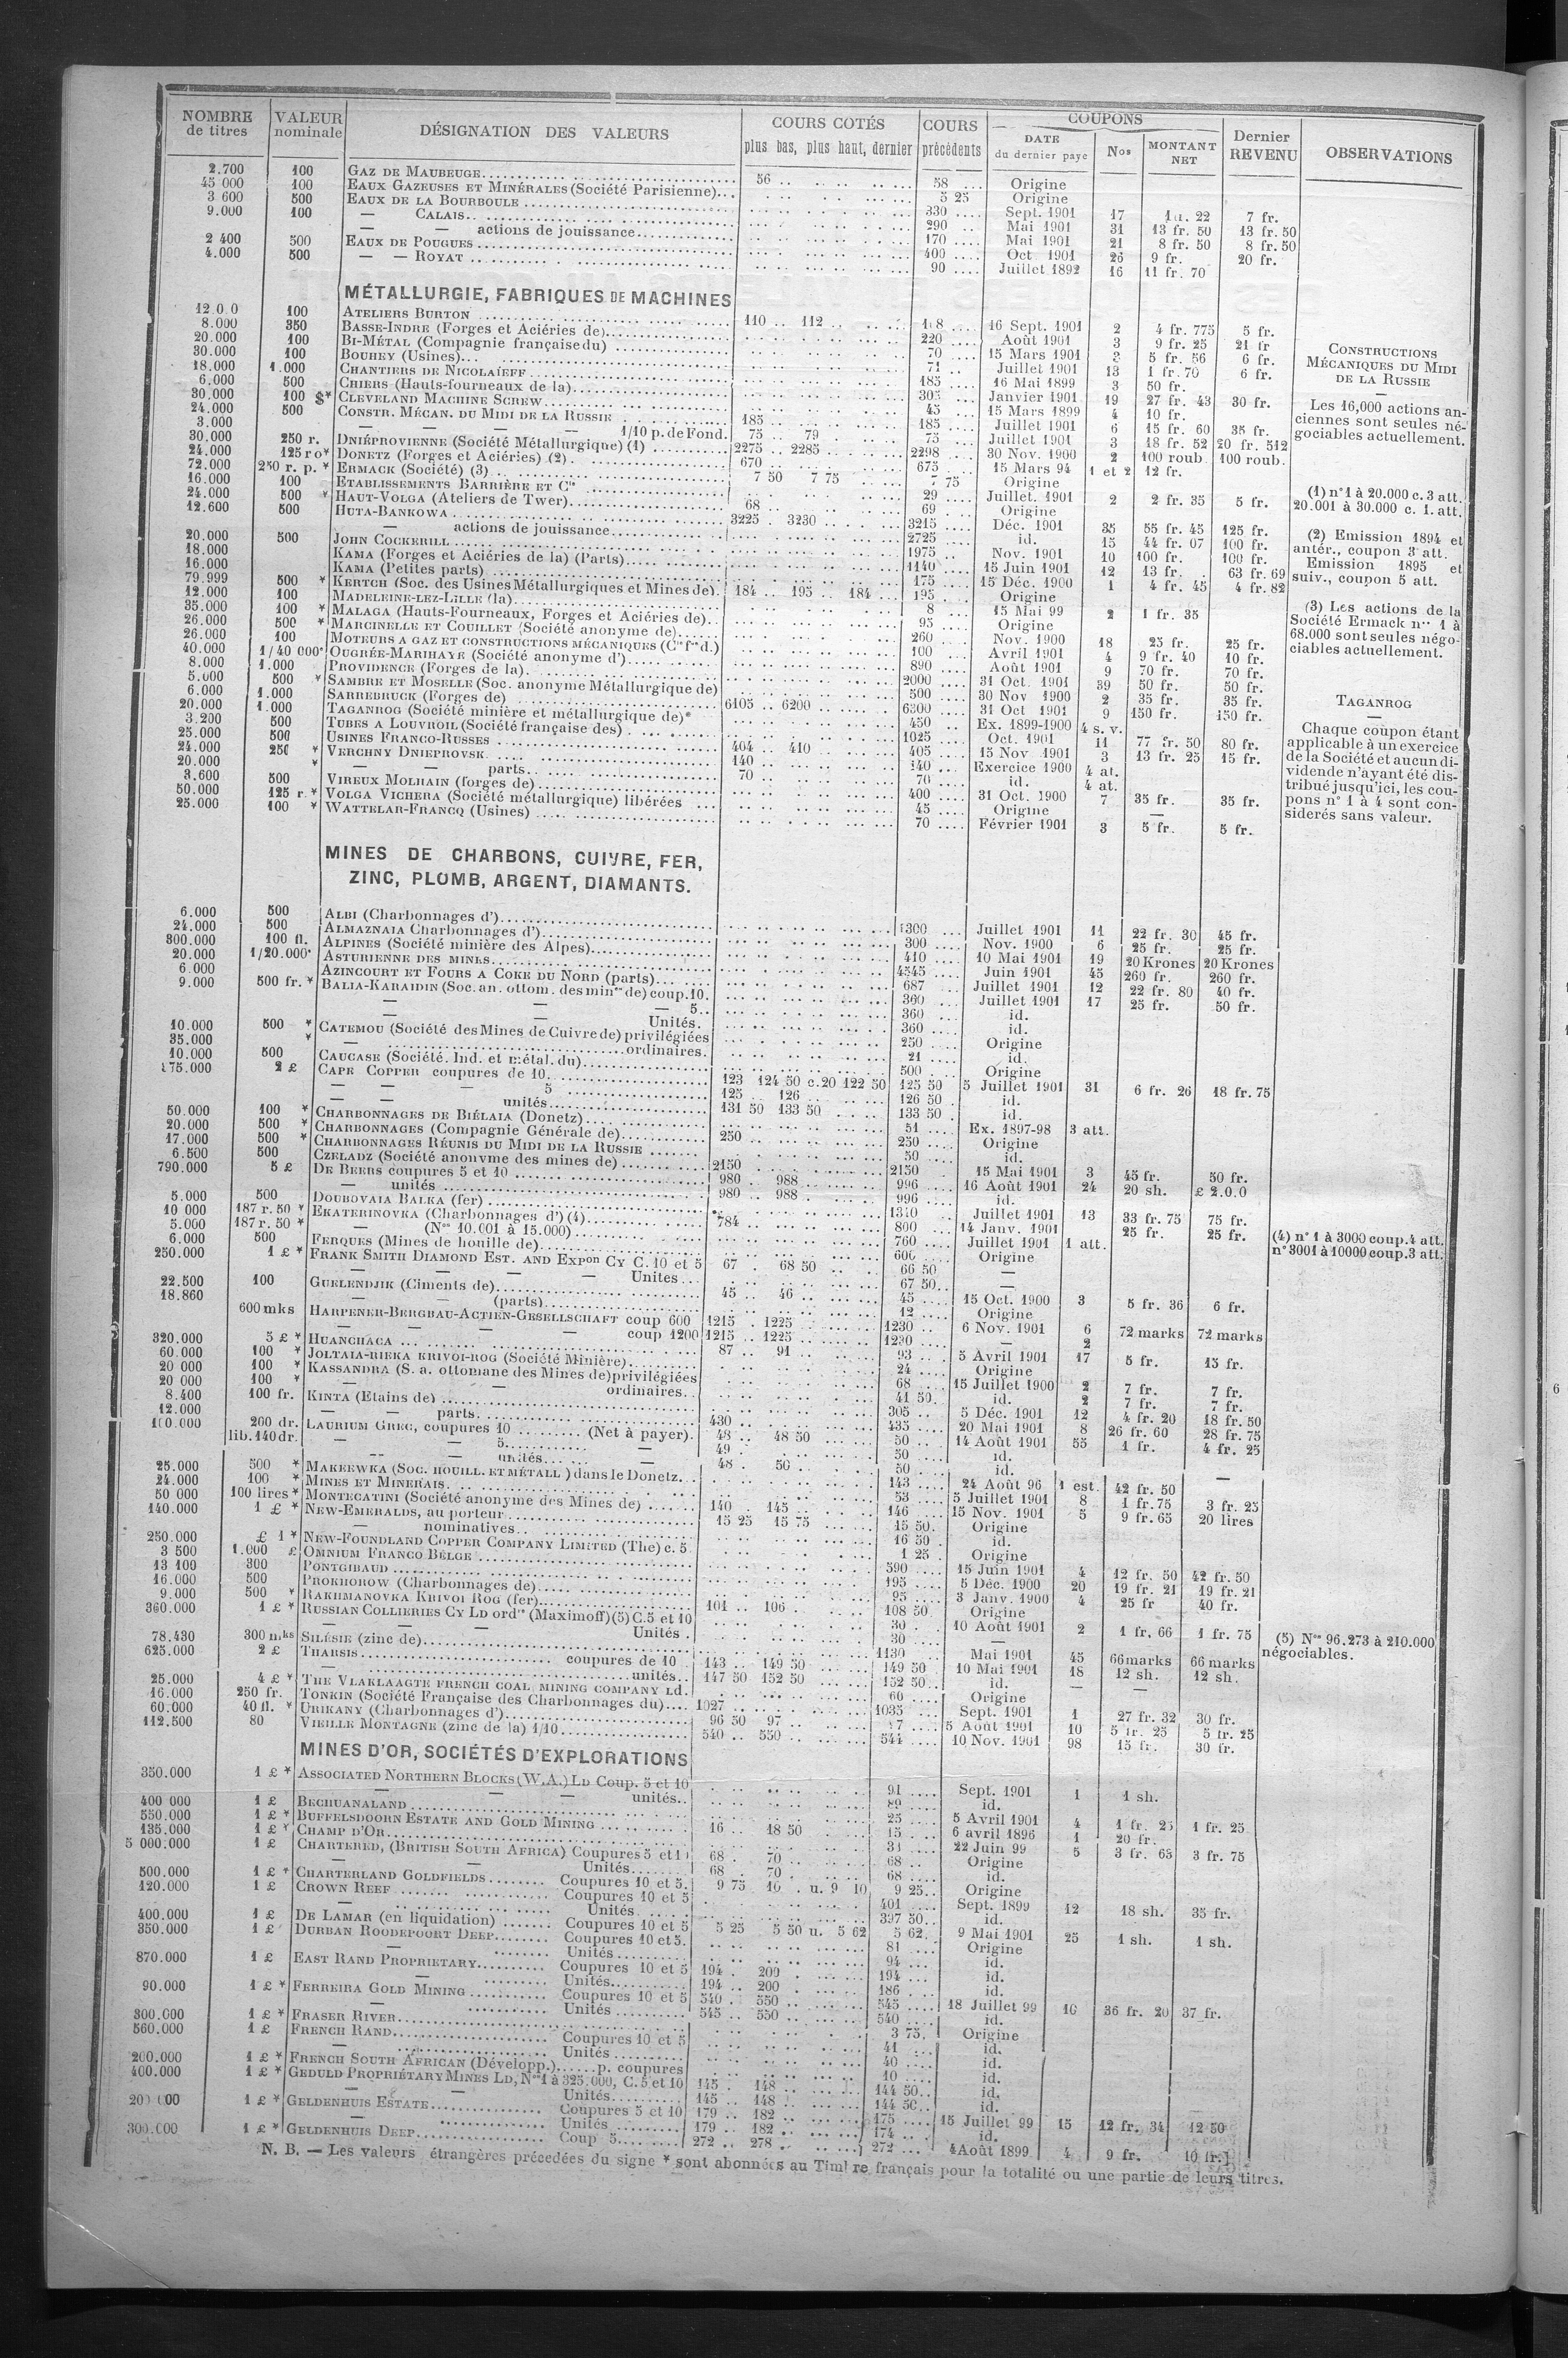 NOMBRE de titres | VALEUR nominale | DÉSIGNATION DES VALEURS | COURS COTÉS plus bas, plus haut, dernier | COURS précédents | COUPONS DATE du dernier paye | Nos | MONTANT NET | Dernier REVENU | OBSERVATIONS
2.700 100 GAZ DE MAUBEUGE 56 58 Origine
45 000 100 EAUX GAZEUSES ET MINÉRALES (Société Parisienne) 5 25 Origine
3 600 500 EAUX DE LA BOURBOULE 330 Sept. 1901 17 22 7 fr.
9.000 100 — CALAIS 290 Mai 1901 31 13 fr. 50 13 fr. 50
— — actions de jouissance 170 Mai 1901 21 8 fr. 50 8 fr. 50
2 400 500 EAUX DE POUGUES 400 Oct 1901 26 9 fr. 20 fr.
4.000 500 — — ROYAT 90 Juillet 1892 16 11 fr. 70
MÉTALLURGIE, FABRIQUES DE MACHINES
100 ATELIERS BURTON 110 112 16 Sept. 1901 2 4 fr. 775 5 fr.
8.000 350 BASSE-INDRE (Forges et Aciéries de) 220 Août 1901 3 9 fr. 25 21 fr
20.000 100 BI-MÉTAL (Compagnie française du) 70 15 Mars 1901 5 fr. 56 6 fr.
30.000 100 BOUHEY (Usines) 71 Juillet 1901 13 1 fr. 70 6 fr.
18.000 1.000 CHANTIERS DE NICOLAÏEFF 185 16 Mai 1899 3 50 fr.
6.000 500 CHIERS (Hauts-fourneaux de la) 305 Janvier 1901 19 27 fr. 43 30 fr.
30.000 100 $* CLEVELAND MACHINE SCREW 45 15 Mars 1899 4 10 fr.
24.000 500 CONSTR. MÉCAN. DU MIDI DE LA RUSSIE 185 185 Juillet 1901 6 15 fr. 60 35 fr.
3.000 — — — — 1/10 p. de Fond. 75 79 75 Juillet 1901 3 18 fr. 52 20 fr. 512
30.000 250 r. DNIÉPROVIENNE (Société Métallurgique) (1) 2275 2285 2298 30 Nov. 1900 2 100 roub. 100 roub.
24.000 125 ro* DONETZ (Forges et Aciéries) (2) 670 675 15 Mars 94 1 et 2 12 fr.
72.000 250 r. p. * ERMACK (Société) (3) 7 50 7 75 7 75 Origine
16.000 100 ETABLISSEMENTS BARRIÈRE ET Cie 29 Juillet. 1901 2 2 fr. 35 5 fr.
24.000 500 * HAUT-VOLGA (Ateliers de Twer) 68 69 Origine
12.600 500 HUTA-BANKOWA 3225 3230 3215 Déc. 1901 35 55 fr. 45 125 fr.
— actions de jouissance 2725 id. 15 44 fr. 07 100 fr.
20.000 500 JOHN COCKERILL 1975 Nov. 1901 10 100 fr. 100 fr.
18.000 KAMA (Forges et Aciéries de la) (Parts) 1140 15 Juin 1901 12 13 fr. 63 fr. 69
16.000 KAMA (Petites parts) 175 15 Déc. 1900 1 4 fr. 45 4 fr. 82
79.999 500 * KERTCH (Soc. des Usines Métallurgiques et Mines de) 184 195 184 195 Origine
12.000 100 MADELEINE-LEZ-LILLE (la) 8 15 Mai 99 2 1 fr. 35
35.000 100 * MALAGA (Hauts-Fourneaux, Forges et Aciéries de) 95 Origine
26.000 500 * MARCINELLE ET COUILLET (Société anonyme de) 260 Nov. 1900 18 25 fr. 25 fr.
26.000 100 MOTEURS A GAZ ET CONSTRUCTIONS MÉCANIQUES 100 Avril 1901 4 9 fr. 40 10 fr.
40.000 1/40 000e OUGRÉE-MARIHAYE (Société anonyme d') 890 Août 1901 9 70 fr. 70 fr.
8.000 1.000 PROVIDENCE (Forges de la) 2000 31 Oct. 1901 39 50 fr. 50 fr.
5.000 500 * SAMBRE ET MOSELLE (Soc. anonyme Métallurgique de) 500 30 Nov 1900 2 35 fr. 35 fr.
6.000 1.000 SARREBRUCK (Forges de) 6105 6200 6300 31 Oct 1901 9 150 fr. 150 fr.
20.000 1.000 TAGANROG (Société minière et métallurgique de)* 450 Ex. 1899-1900 4 s. v.
3.200 500 TUBES A LOUVROIL (Société française des) 1025 Oct. 1901 11 77 fr. 50 80 fr.
25.000 500 USINES FRANCO-RUSSES 404 410 405 15 Nov 1901 3 13 fr. 25 15 fr.
24.000 250 * VERCHNY DNIEPROVSK 140 140 Exercice 1900 4 at.
20.000 * — — parts 70 70 id. 4 at.
3.600 500 VIREUX MOLHAIN (forges de) 400 31 Oct. 1900 7 35 fr. 35 fr.
50.000 125 r. * VOLGA VICHERA (Société métallurgique) libérées 45 Origine —
25.000 100 * WATTELAR-FRANCQ (Usines) 70 Février 1901 3 5 fr. 5 fr.
CONSTRUCTIONS
MÉCANIQUES DU MIDI
DE LA RUSSIE
—
Les 16,000 actions an-
ciennes sont seules né-
gociables actuellement.
(1) n° 1 à 20.000 c. 3 att.
20.001 à 30.000 c. 1. att.
(2) Emission 1894 et
antér., coupon 3 att.
Emission 1895 et
suiv., coupon 5 att.
(3) Les actions de la
Société Ermack nos 1 à
68.000 sont seules négo-
ciables actuellement.
TAGANROG
—
Chaque coupon étant
applicable à un exercice
de la Société et aucun di-
vidende n'ayant été dis-
tribué jusqu'ici, les cou-
pons n° 1 à 4 sont con-
siderés sans valeur.
MINES DE CHARBONS, CUIVRE, FER,
ZINC, PLOMB, ARGENT, DIAMANTS.
6.000 500 ALBI (Charbonnages d') Juillet 1901 11 22 fr. 30 45 fr.
24.000 500 ALMAZNAIA Charbonnages d') 300 Nov. 1900 6 25 fr. 25 fr.
300.000 100 fl. ALPINES (Société minière des Alpes) 410 10 Mai 1901 19 20 Krones 20 Krones
20.000 1/20.000e ASTURIENNE DES MINES 4545 Juin 1901 45 260 fr. 260 fr.
6.000 AZINCOURT ET FOURS A COKE DU NORD (parts) 687 Juillet 1901 12 22 fr. 80 40 fr.
9.000 500 fr. * BALIA-KARAIDIN (Soc. an. ottom. des mines de) coup. 10. 360 Juillet 1901 17 25 fr. 50 fr.
— — — 5 360 id.
— — Unités. 360 id.
10.000 500 * CATEMOU (Société des Mines de Cuivre de) privilégiées 250 Origine
35.000 * — ordinaires. 21 id.
10.000 500 CAUCASE (Société. Ind. et métal. du) 500 Origine
175.000 2 £ CAPE COPPER coupures de 10 123 124 50 c. 20 122 50 125 50 5 Juillet 1901 31 6 fr. 26 18 fr. 75
— — — 5 125 126 126 50 id.
— — unités 131 50 133 50 133 50 id.
50.000 100 * CHARBONNAGES DE BIÉLAIA (Donetz) 51 Ex. 1897-98 3 att.
20.000 500 * CHARBONNAGES (Compagnie Générale de) 250 250 Origine
17.000 500 * CHARBONNAGES RÉUNIS DU MIDI DE LA RUSSIE 50 id.
6.500 500 CZELADZ (Société anonyme des mines de) 2150 2150 15 Mai 1901 3 45 fr. 50 fr.
790.000 5 £ DE BEERS coupures 5 et 10 980 988 996 16 Août 1901 24 20 sh. £ 2.0.0
— unités 980 988 996 id.
5.000 500 DOUBOVAIA BALKA (fer) Juillet 1901 13 33 fr. 75 75 fr.
10 000 187 r. 50 * EKATERINOVKA (Charbonnages d') (4) 784 800 14 Janv. 1901 25 fr. 25 fr.
5.000 187 r. 50 * — (Nos 10.001 à 15.000) 760 Juillet 1901 1 att.
6.000 500 FERQUES (Mines de houille de) 600 Origine
250.000 1 £ * FRANK SMITH DIAMOND EST. AND EXPon CY C. 10 et 5 67 68 50 66 50 —
— — — — Unites 67 50 —
22.500 100 GUELENDJIK (Ciments de) 45 46 45 15 Oct. 1900 3 5 fr. 36 6 fr.
18.860 — — (parts) 12 Origine
600 mks HARPENER-BERGBAU-ACTIEN-GESELLSCHAFT coup 600 1215 1225 1230 6 Nov. 1901 6 72 marks 72 marks
— — — — coup 1200 1215 1225 1230 — 2
320.000 5 £ * HUANCHACA 87 91 93 5 Avril 1901 17 5 fr. 15 fr.
60.000 100 * JOLTAIA-RIEKA KRIVOI-ROG (Société Minière) 24 Origine
20 000 100 * KASSANDRA (S. a. ottomane des Mines de) privilégiées 68 15 Juillet 1900 2 7 fr. 7 fr.
20 000 100 * — — ordinaires 41 50 id. 2 7 fr. 7 fr.
8.400 100 fr. KINTA (Etains de) 305 5 Déc. 1901 12 4 fr. 20 18 fr. 50
12.000 — — parts 430 435 20 Mai 1901 8 26 fr. 60 28 fr. 75
200 dr. LAURIUM GREC, coupures 10 (Net à payer) 48 48 50 50 14 Août 1901 55 1 fr. 4 fr. 25
lib. 140 dr. — — 5 — 49 50 id.
— — unités — 48 50 50 id.
25.000 500 * MAKEEWKA (SOC. HOUILL. ET MÉTALL) dans le Donetz 143 24 Août 96 1 est. 42 fr. 50 —
24.000 100 * MINES ET MINERAIS 53 5 Juillet 1901 8 1 fr. 75 3 fr. 25
50 000 100 lires * MONTECATINI (Société anonyme des Mines de) 140 145 146 15 Nov. 1901 5 9 fr. 65 20 lires
140.000 1 £ * NEW-EMERALDS, au porteur 15 25 15 75 15 50 Origine
— nominatives 16 50 id.
250.000 £ 1 * NEW-FOUNDLAND COPPER COMPANY LIMITED (The) c. 5 1 25 Origine
3 500 1.000 £ OMNIUM FRANCO BELGE 590 15 Juin 1901 4 12 fr. 50 42 fr. 50
13 100 300 PONTGIBAUD 195 5 Déc. 1900 20 19 fr. 21 19 fr. 21
16.000 500 PROKHOROW (Charbonnages de) 95 3 Janv. 1900 4 25 fr 40 fr.
9.000 500 * RAKHMANOVKA KRIVOI ROG (fer) 101 106 108 50 Origine
360.000 1 £ * RUSSIAN COLLIERIES CY LD ordres (Maximoff) (5) C. 5 et 10 30 10 Août 1901 2 1 fr. 66 1 fr. 75
— — — Unités 30 —
78.430 300 mks SILÉSIE (zinc de) 1130 Mai 1901 45 66 marks 66 marks
625.000 2 £ THARSIS coupures de 10 143 149 50 149 50 10 Mai 1901 18 12 sh. 12 sh.
— unités 147 50 152 50 152 50 id. — —
25.000 4 £ * THE VLAKLAAGTE FRENCH COAL MINING COMPANY LD. 60 Origine
16.000 250 fr. TONKIN (Société Française des Charbonnages du) 1027 1035 Sept. 1901 1 27 fr. 32 30 fr.
60.000 40 fl. * URIKANY (Charbonnages d') 96 50 97 5 Août 1901 10 5 fr. 25 5 fr. 25
112.500 80 VIEILLE MONTAGNE (zinc de la) 1/10 540 550 544 10 Nov. 1901 98 15 fr. 30 fr.
(4) n° 1 à 3000 coup. 4 att.
n° 3001 à 10000 coup. 3 att.
(5) Nos 96.273 à 210.000
négociables.
MINES D'OR, SOCIÉTÉS D'EXPLORATIONS
350.000 1 £ * ASSOCIATED NORTHERN BLOCKS (W.A.) LD Coup. 5 et 10 91 Sept. 1901 1 1 sh.
— — unités 89 id.
400 000 1 £ BECHUANALAND 25 5 Avril 1901 4 1 fr. 25 1 fr. 25
550.000 1 £ * BUFFELSDOORN ESTATE AND GOLD MINING 16 18 50 15 6 avril 1896 1 20 fr.
135.000 1 £ * CHAMP D'OR 22 Juin 99 5 3 fr. 65 3 fr. 75
5 000.000 1 £ CHARTERED, (BRITISH SOUTH AFRICA) Coupures 5 et 10 68 70 68 Origine
— — Unités 68 70 68 id.
500.000 1 £ * CHARTERLAND GOLDFIELDS Coupures 10 et 5 9 75 10 u. 9 10 9 25 Origine
120.000 1 £ CROWN REEF Coupures 10 et 5 401 Sept. 1899 12 18 sh. 35 fr.
— Unités 397 50 id.
400.000 1 £ DE LAMAR (en liquidation) Coupures 10 et 5 5 25 5 50 u. 5 62 5 62 9 Mai 1901 25 1 sh. 1 sh.
350.000 1 £ DURBAN ROODEPOORT DEEP Coupures 10 et 5. 81 Origine
— Unités 94 id.
870.000 1 £ EAST RAND PROPRIETARY Coupures 10 et 5 194 200 194 id.
— Unités 194 200 186 id.
90.000 1 £ * FERREIRA GOLD MINING Coupures 10 et 5 540 550 545 18 Juillet 99 16 36 fr. 20 37 fr.
— Unités 545 550 540 id.
300.000 1 £ * FRASER RIVER 3 75 Origine
560.000 1 £ FRENCH RAND Coupures 10 et 5 41 id.
— Unités 40 id.
200.000 1 £ * FRENCH SOUTH AFRICAN (Développ.) p. coupures 10 id.
400.000 1 £ * GEDULD PROPRIÉTARY MINES LD, Nos 1 à 325.000, C. 5 et 10 145 148 144 50 id.
— — Unités 145 148 144 50 id.
200 000 1 £ * GELDENHUIS ESTATE Coupures 5 et 10 179 182 175 15 Juillet 99 15 12 fr. 34 12 50
— Unités 179 182 174 id.
300.000 1 £ * GELDENHUIS DEEP Coup 5 272 278 272 4 Août 1899 4 9 fr. 10 fr.
N. B. — Les valeurs étrangères précedées du signe * sont abonnées au Timbre français pour la totalité ou une partie de leurs titres.
6